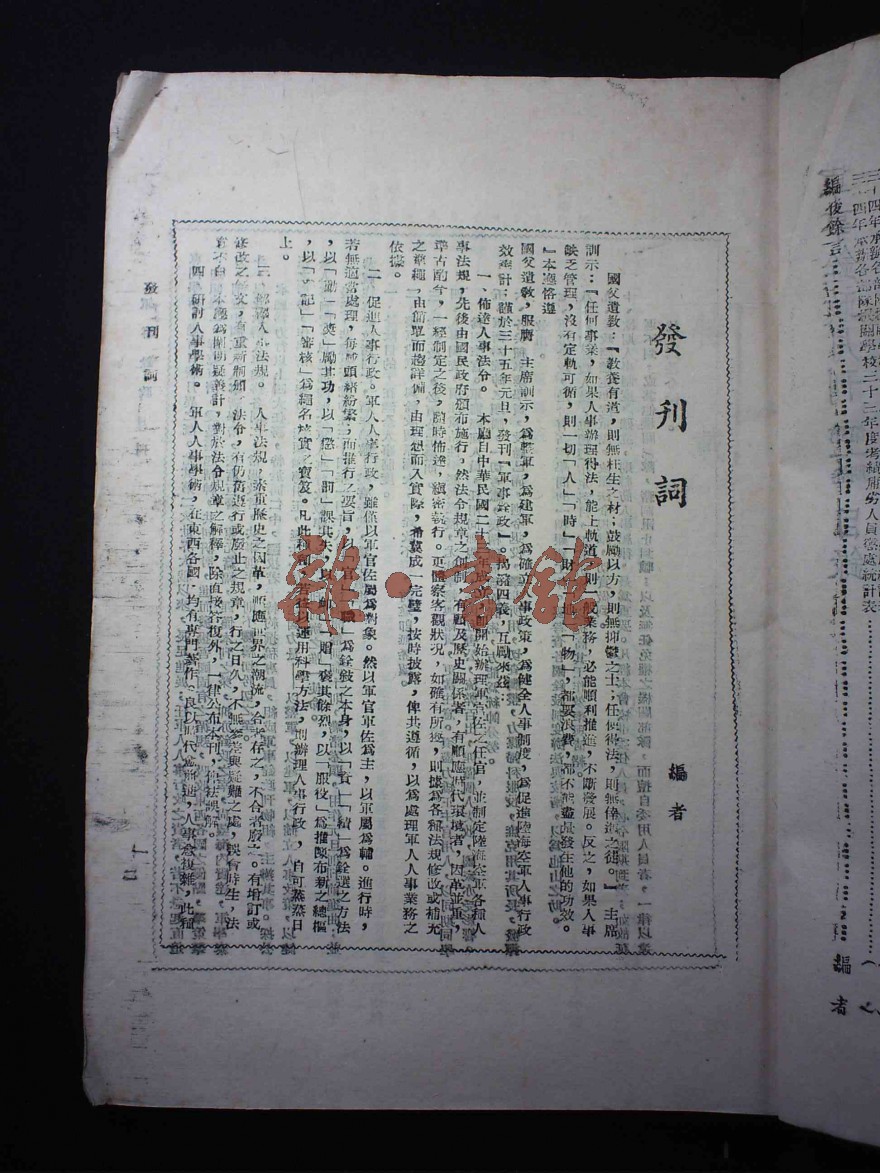 發刊詞
編者
國父遺教:『教養有道,則無枉生之材;鼓勵以方,則無抑鬱之士;任使得法,則無倖進之徒。』主席
訓示:『任何事業,如果人事辦理得法,能上軌道,則一般業務,必能順利推進,不斷發展。反之,如果人事
缺乏管理,沒有定軌可循,則一切「人」「時」「財」「地」「物」,都要浪費,都不能盡量發生他的功效。
』本廳恪遵
國父遺教,服膺 主席訓示,為整軍,為建軍,為確立人事政策,為健全人事制度,為促進陸海空軍人事行政
效率計;謹於三十五年元旦,發刊『軍事銓政』,揭櫫四義,互勵來茲:
一、佈達人事法令。 本廳自中華民國二十三年成立,即開始辦理軍官佐之任官,並制定陸海空軍各種人
事法規,先後由國民政府頒布施行,然法令規章之創制,有顧及歷史關係者,有順應時代環境者,因革並重,
準古酌今,一經制定之後,隨時佈達,縝密執行。更體察客觀狀況,如確有所獲,則據為各種法規修改或補充
之準繩,由簡單而趨詳備,由理想而入實際,希冀成一完璧,按時披露,俾共遵循,以為處理軍人人事業務之
依據。
二 促進人事行政。軍人人事行政,雖僅以軍官佐屬為對象。然以軍官軍佐為主,以軍屬為輔。進行時,
若無適當處理,每感頭緒紛繁,而推行之要旨,以「官」「職」為銓敘之本身,以「資」「績」為銓選之方法
,以「勛」「獎」勵其功,以「懲」「罰」課其失,以「卹」「贈」褒其餘烈,以「服役」為推陳布新之總樞
,以「登記」「審核」為綱名核實之寶笈。凡此種種,若能以運用科學方法,則辦理人事行政,自可蒸蒸日
上。
三 人事法規。 人事法規,索重歷史之因革,順應世界之潮流,合者存之,不合者廢之。有增訂或
修改之條文,有重新制頒之法令,有仍舊遵行或廢止之規章,行之日久,不無參差與疑難之處,誤會時生,法
意不白,本廳為闡明疑義計,對於法令規章之解釋,除直接答復外,一律公布本刊,
四 研討人事學術。 軍人人事學術,在東西各國,均有專門著作。良以時代愈前進,人事愈複雜,此種
發刊詞
一
編後餘言
三十四年本部各部隊機關學校三十三年度考績庸劣人員懲處統計表
編者